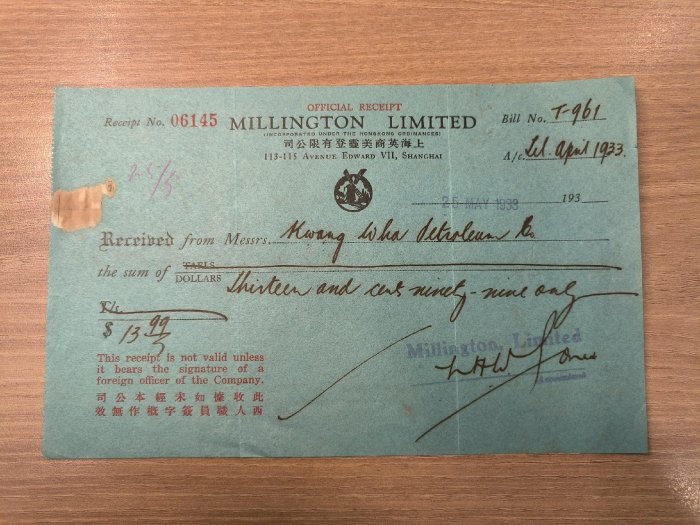 OFFICIAL RECEIPT
Receipt No. 06145 MILLINGTON LIMITED Bill No. T-961
(INCORPORATED UNDER THE HONGKONG ORDINANCES)
司公限有登靈美商英海上
113-115 AVENUE EDWARD VII, SHANGHAI A/c. Tel. April 1933.
25/5
25 MAY 1933 193
Received from Messrs. Kwang Wha Petroleum Co
the sum of TAELS DOLLARS Thirteen and cents ninety-nine only
Tls.
$ 13 99
This receipt is not valid unless
it bears the signature of a
foreign officer of the Company.
司公本經未如據收此
效無作概字簽員職人西
Millington, Limited
Jones
Accountant